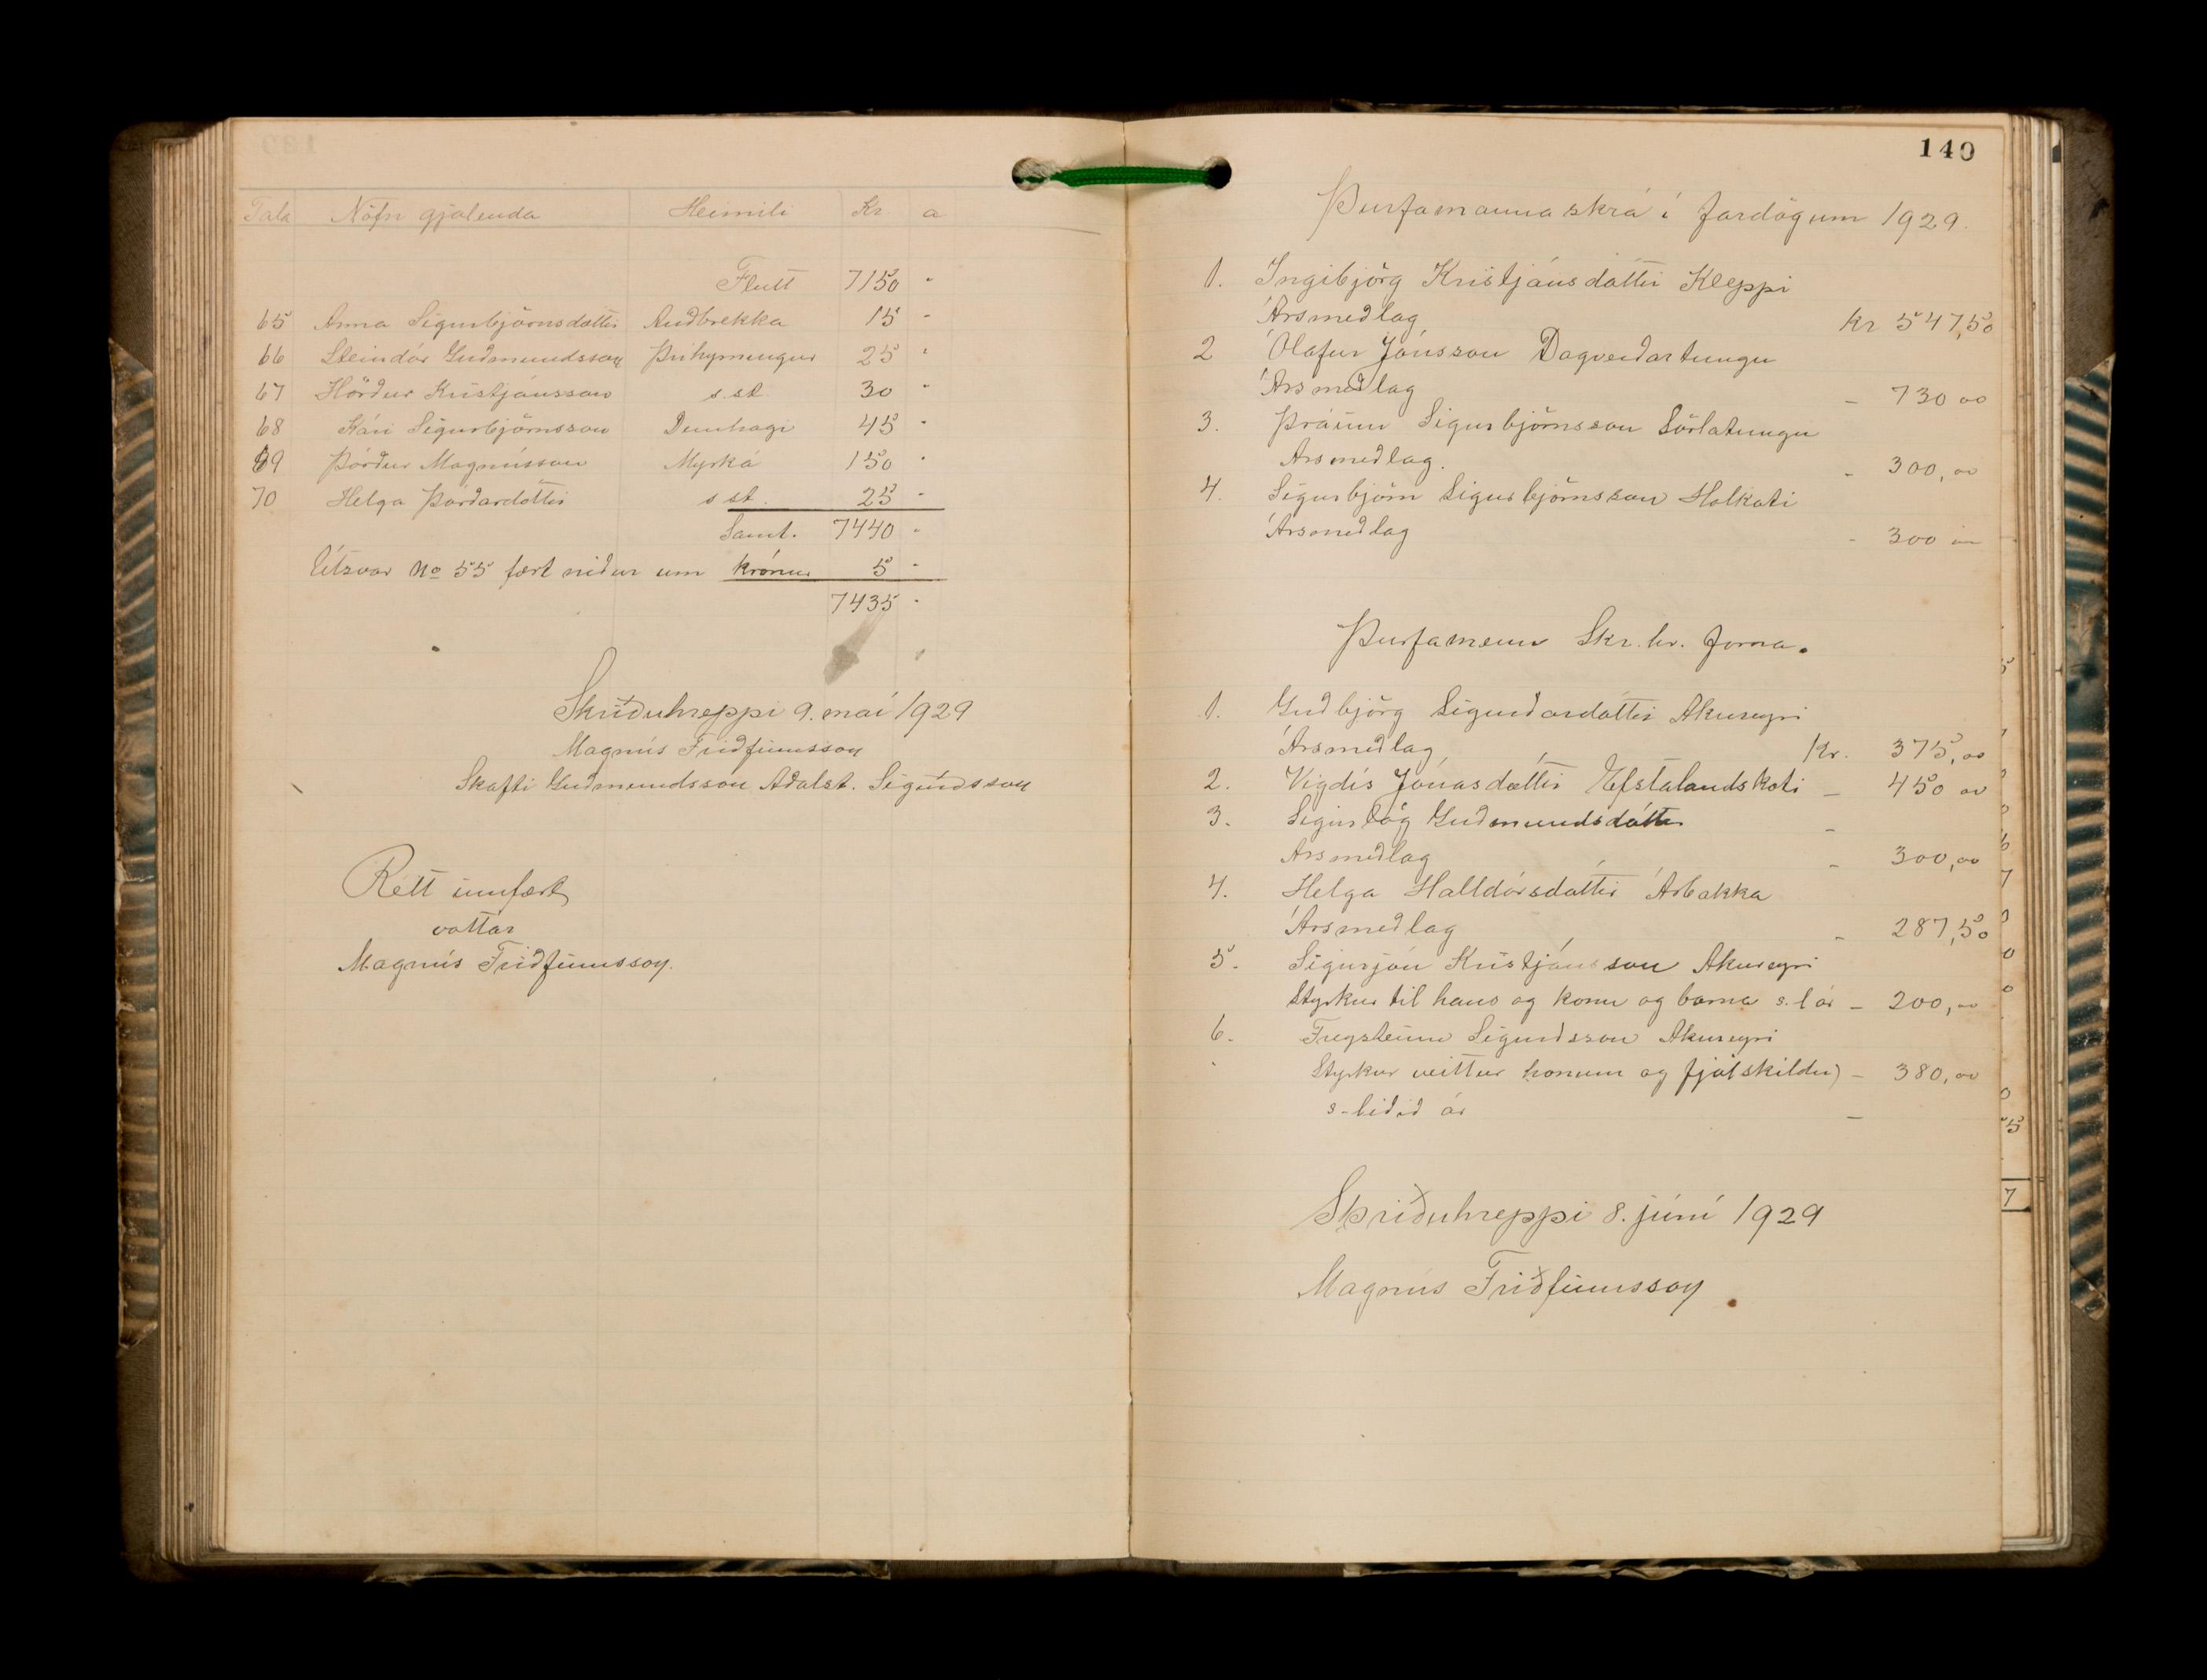 Tala Nöfn gjalenda Heimili Kr a
Flutt 7150 -
65 Anna Sigurbjörnsdóttir Auðbrekka 15 -
66 Steindór Guðmundsson Þríhyrningur 25 -
67 Hörður Kristjánsson s.st. 30 -
68 Kári Sigurbjörnsson Dunhagi 45 -
69 Þórður Magnússon Myrká 150 -
70 Helga Þórðardóttir s st. 25 -
Samt. 7440 -
Útsvar No 55 fært niður um krónur 5 -
7435 -
Skriðuhreppi 9. maí 1929
Magnús Friðfinnsson
Skafti Guðmundsson Aðalst. Sigurðsson
Rétt innfært
vottar
Magnús Friðfinnsson.
140
Þurfamannaskrá í fardögum 1929.
1. Ingibjörg Kristjánsdóttir Kleppi
Ársmeðlag Kr 547,50
2 Ólafur Jónsson Dagverðartungu
Ársmeðlag - 730 00
3. Þráinn Sigurbjörnsson Sörlatungu
Arsmeðlag. - 300,00
4. Sigurbjörn Sigurbjörnsson Holkoti
Ársmeðlag - 300 00
Þurfamenn Skr.hr. forna.
1. Guðbjörg Sigurðardóttir Akureyri
Ársmeðlag Kr. 375,00
2. Vigdís Jónasdóttir Efstalandskoti - 450 00
3. Sigurlög Guðmundsdóttir -
Arsmeðlag - 300,00
4. Helga Halldórsdóttir Árbakka
Ársmeðlag - 287,50
5. Sigurjón Kristjánsson Akureyri
Styrkur til hans og konu og barna s.l ár - 200,00
6. Freysteinn Sigurðsson Akureyri
Styrkur veittur honum og fjölskildu) - 380,00
s-liðið ár -
Skriðuhreppi 8. júní 1929
Magnús Friðfinnsson